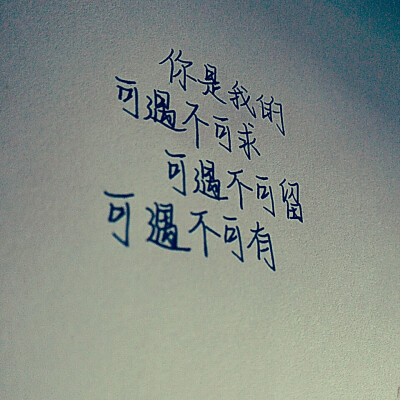 你是我的
可遇不可求
可遇不可留
可遇不可有